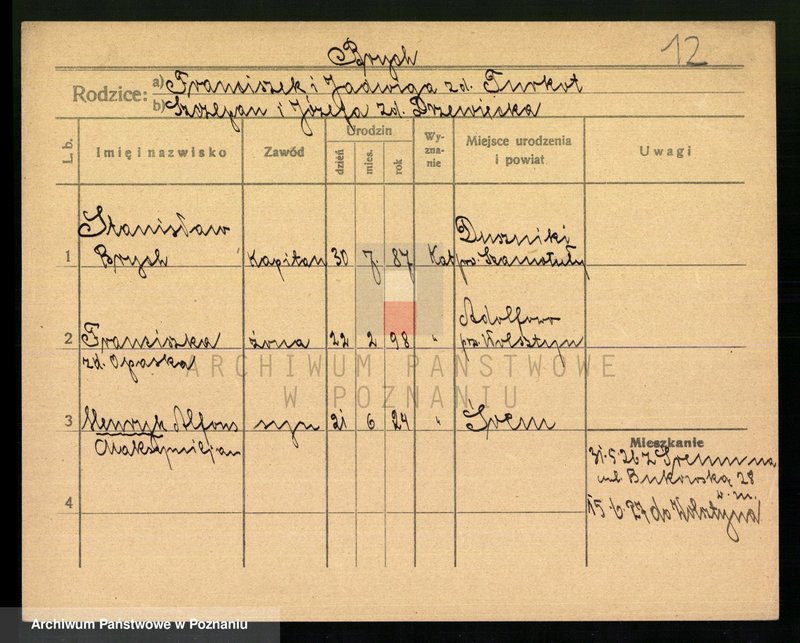 Brych
12
Rodzice: a) Franciszek i Jadwiga zd. Turkot
b) Szczepan i Józefa zd. Drzewiecka
L. b. Imię i nazwisko Zawód Urodzin dzień mies. rok Wyznanie Miejsce urodzenia i powiat Uwagi
Stanisław
1 Brych Kapitan 30 7. 87 Kat Duszniki
pow. Szamotuły
2 Franciszka żona 22 2 98 " Adolfowo
zd. Opaska pow. Wolsztyn
3 Henryk Alfons syn 21 6 24 " Śrem
Maksymiljan
4
Mieszkanie
31.5.26 z Śremu na
ul. Bukowską 28
w. m.
15.6.27 do Wolsztyna
ARCHIWUM PAŃSTWOWE
W POZNANIU
Archiwum Państwowe w Poznaniu